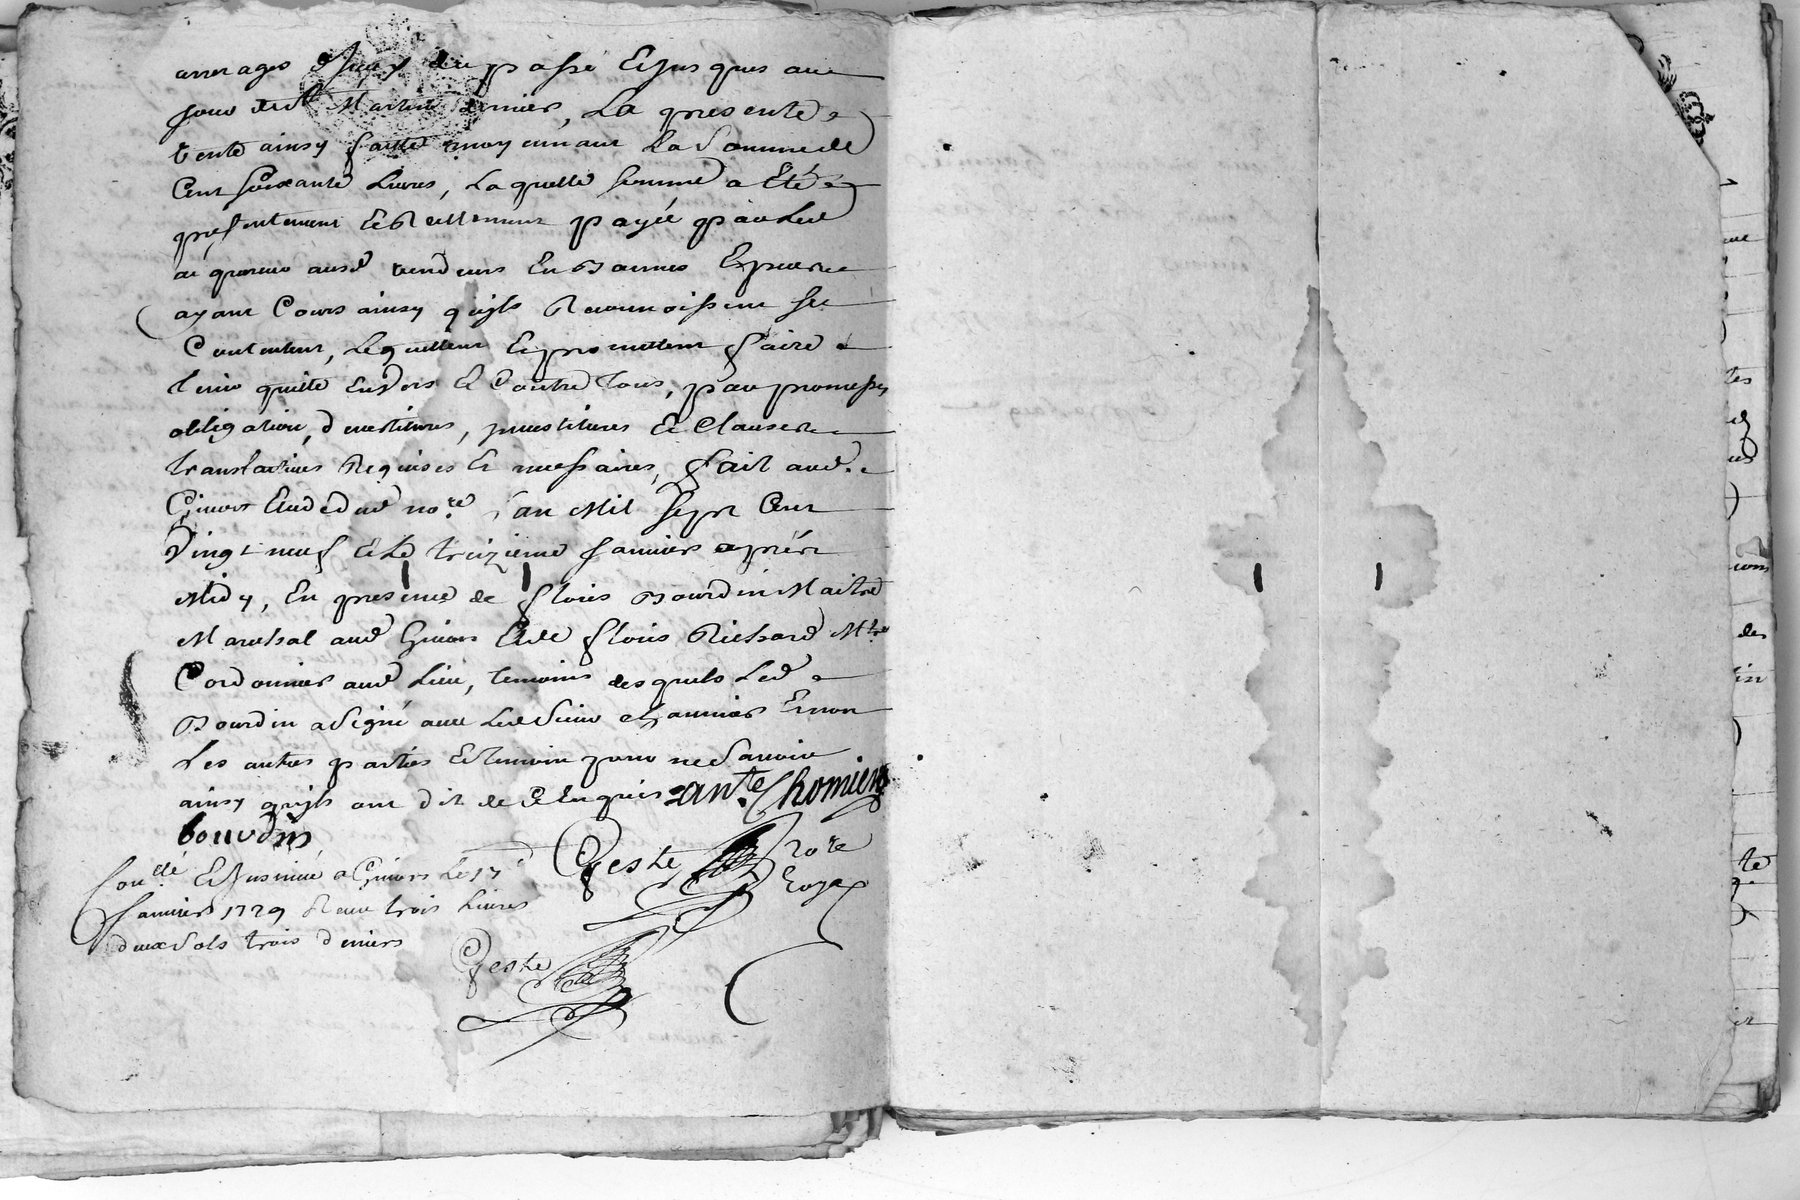 arrerages d'Iceux du passé Et Jusques au
Jour de St Martin dernier, La presente
Vente ainsy faitte moyennant La Somme de
Cent soixante Livres, La quelle somme a Eté
presentement Et Reellement payée par Led
acquereur ausd vendeurs En Bonnes Especes
ayant Cours ainsy quils Reconnoissent se
Contentent, Le quittent Et promettent faire
tenir quitte Envers Et Contre tous, par promesses
obligation, devestitures, investitures Et Clauses
translatives Requises Et necessaires, fait aud.
Givors Etude dud no.re l'an Mil sept Cent
Vingt neuf Et Le treizieme Janvier apres
Midy, En presence de floris Bourdin Maitre
Marechal aud Givors Et de floris Richard M.tre
Cordonnier aud Lieu, temoins des quels Led
Bourdin a Signé avec Led Sieur Chaumier Et non
Les autres parties Et temoin pour ne Savoir
ainsy quils ont dit de Ce Enquis ant.e Chomier
bourdin
Geste No.re
Royal
Con.llé Et Insinué a Givors Le 13
Janvier 1729 Receu trois Livres
deux Sols trois deniers
Geste